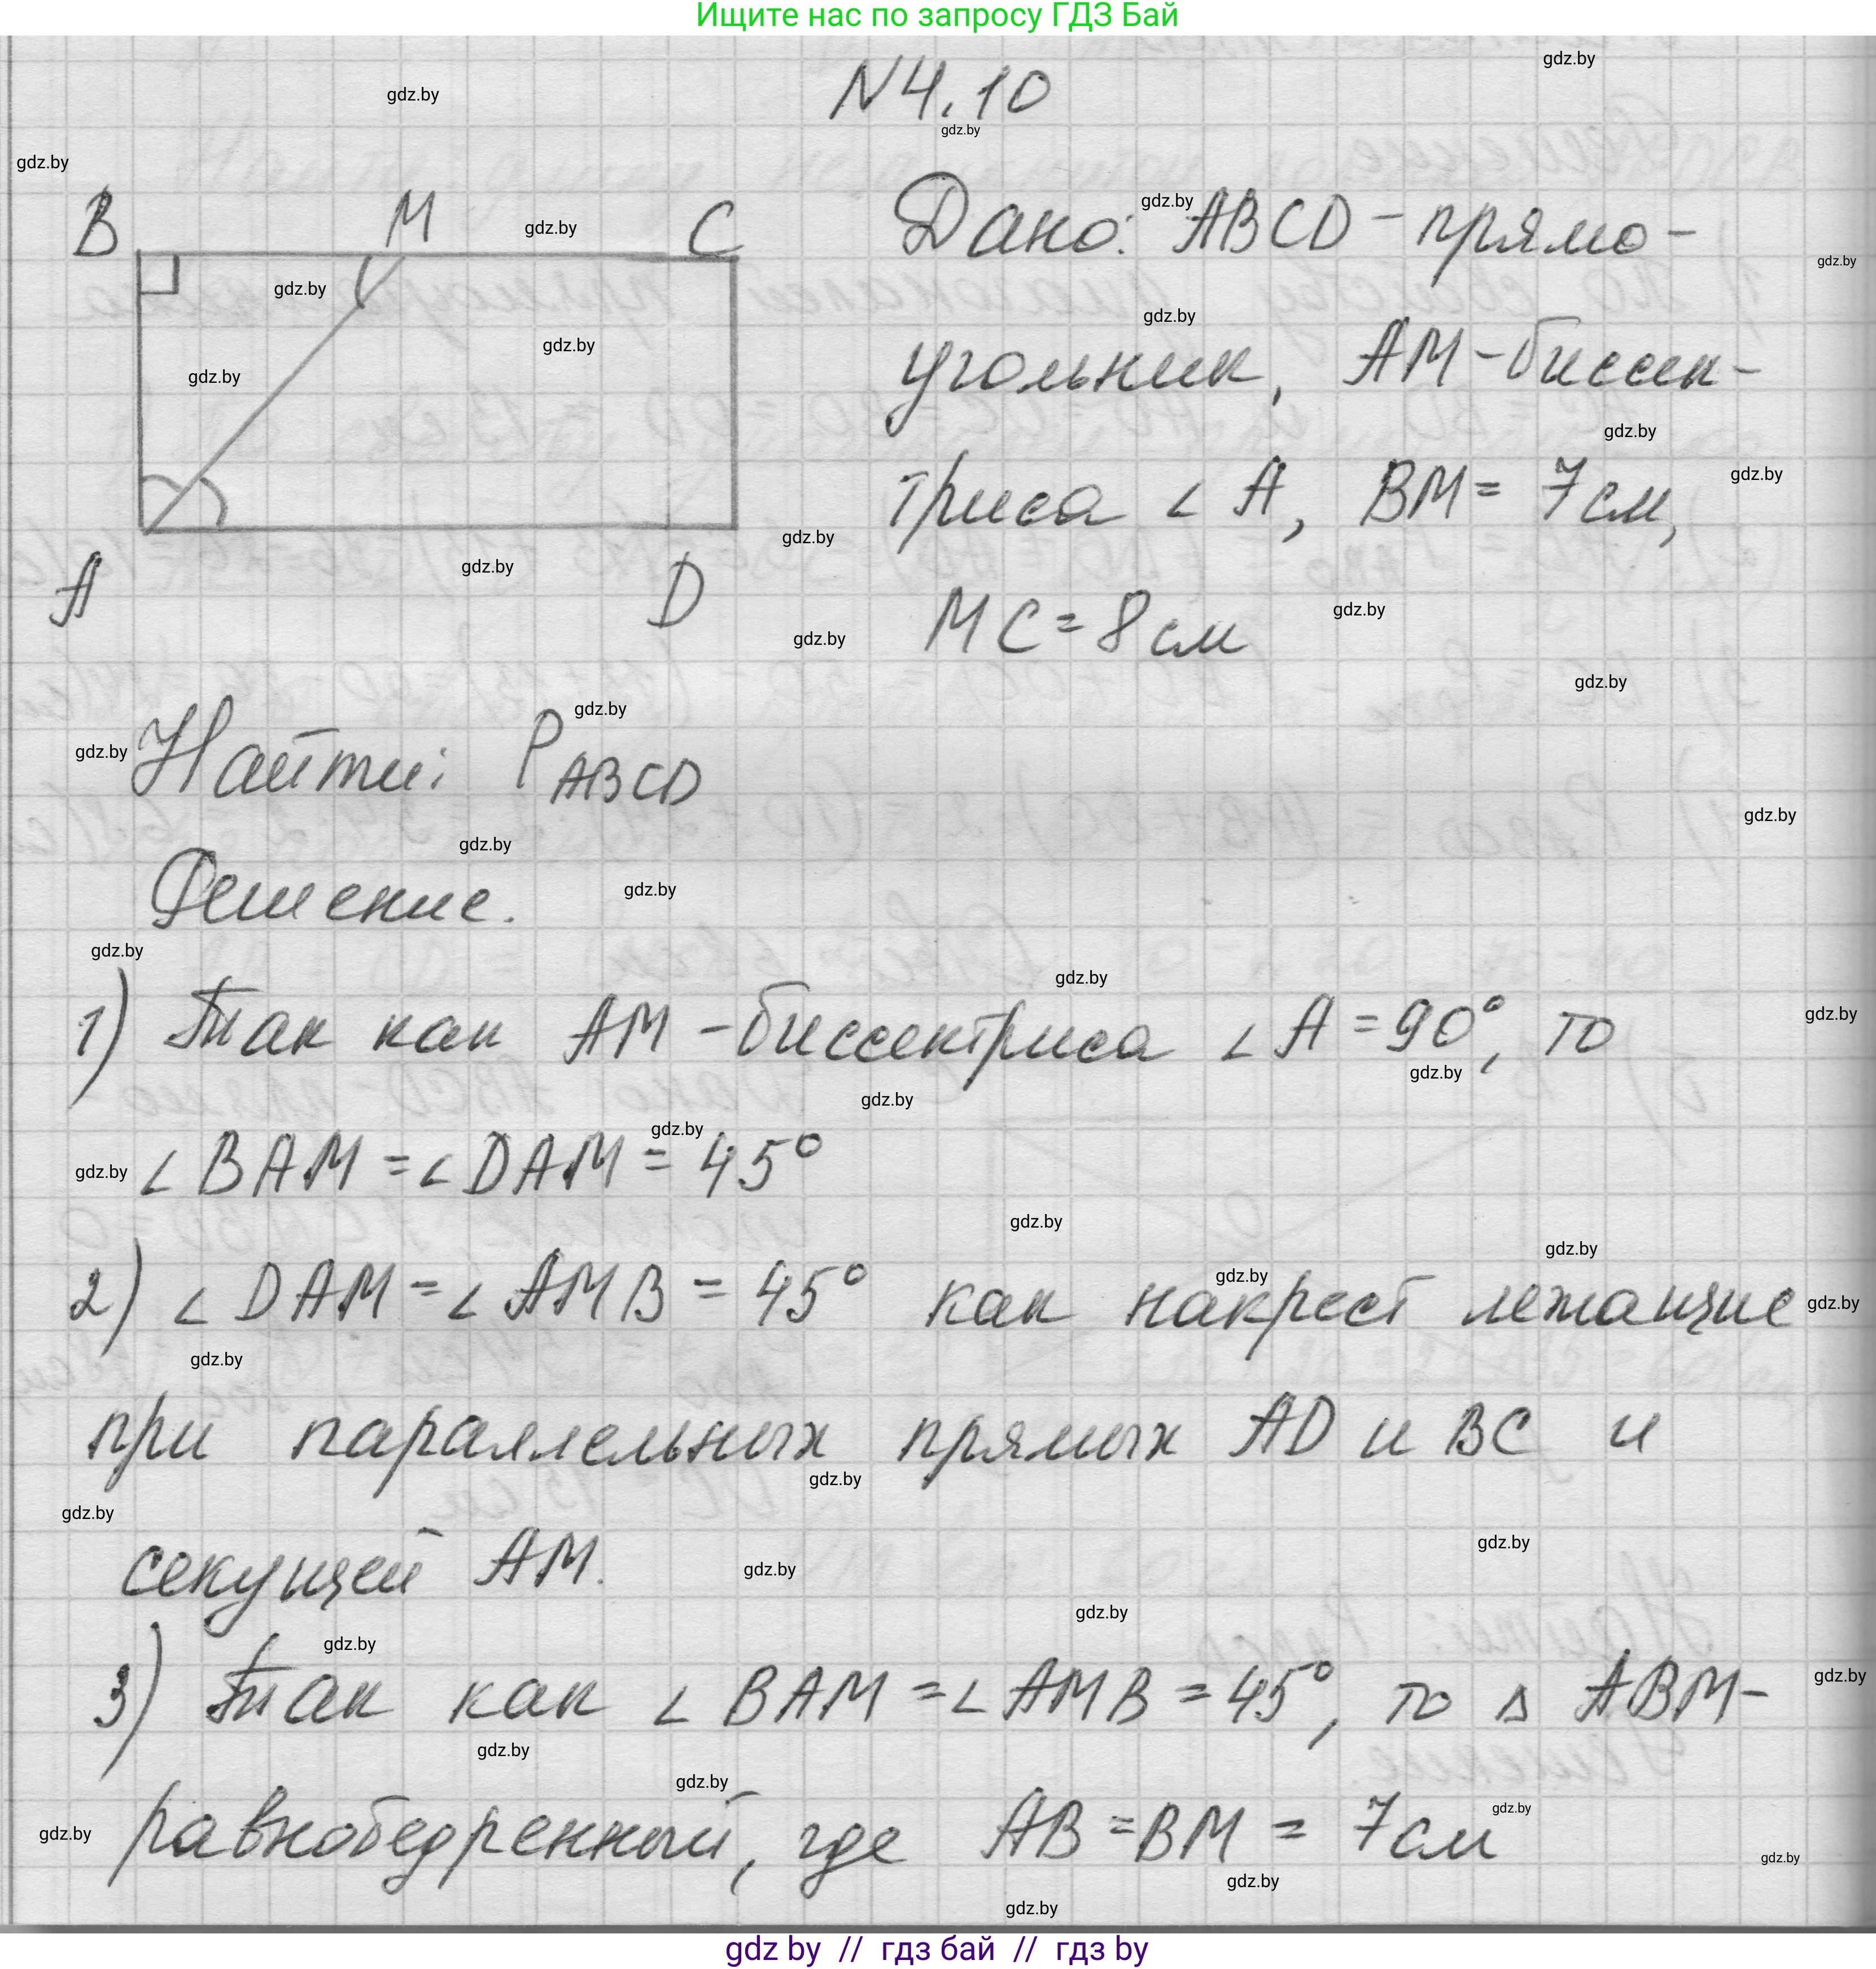 Ищите нас по запросу ГДЗ Бай
N4.10
B M C
A D
Дано: ABCD - прямо-
угольник, AM - биссек-
триса ∠A, BM = 7 см,
MC = 8 см
Найти: P ABCD
Решение.
1) Так как AM - биссектриса ∠A = 90°, то
∠BAM = ∠DAM = 45°
2) ∠DAM = ∠AMB = 45° как накрест лежащие
при параллельных прямых AD и BC и
секущей AM.
3) Так как ∠BAM = ∠AMB = 45°, то △ ABM -
равнобедренный, где AB = BM = 7 см
gdz.by
gdz by // гдз бай // гдз by